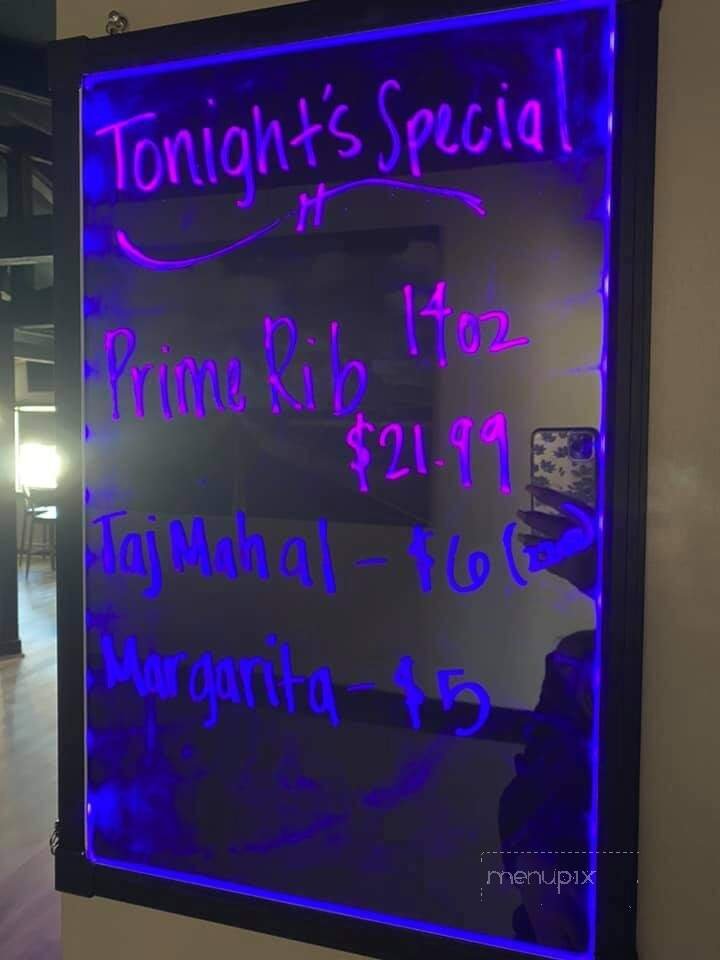 Tonight's Special
14oz
Prime Rib
$21.99
Taj Mahal - $6 (
Margarita - $5
menupix